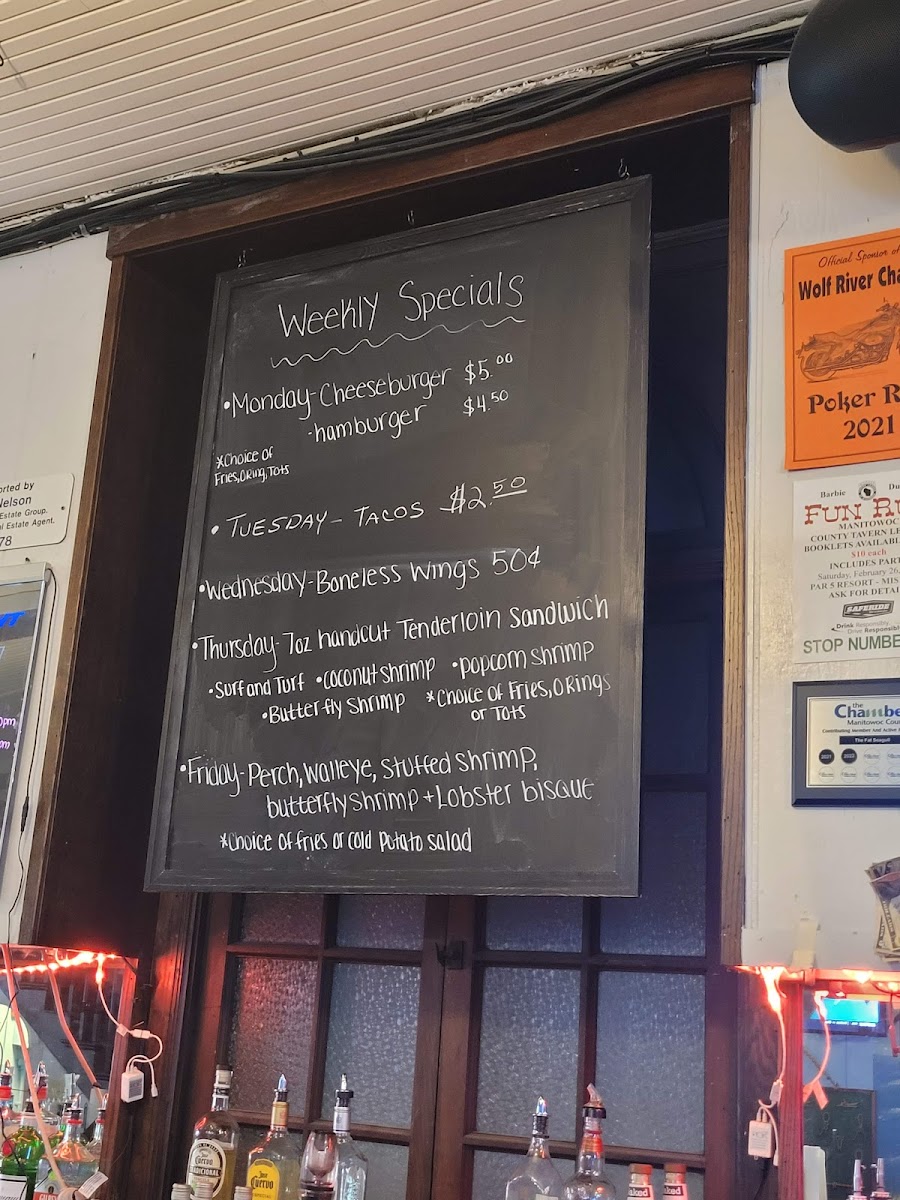 Weekly Specials
•Monday-Cheeseburger $5.00
-hamburger $4.50
*Choice of
Fries,ORing,Tots
•TUESDAY-TACOS $2.50
•Wednesday-Boneless Wings 50¢
•Thursday-7oz handcut Tenderloin Sandwich
•Surf and Turf •coconut shrimp •popcorn shrimp
•Butterfly Shrimp *Choice of Fries,ORings
or Tots
•Friday-Perch,walleye,stuffed shrimp,
butterfly shrimp+Lobster bisque
*Choice of fries or cold potato salad
Official Sponsor of
Wolf River Cha
Poker R
2021
Barbie Du
FUN RU
MANITOWOC
COUNTY TAVERN LE
BOOKLETS AVAILAB
$10 each
INCLUDES PART
Saturday, February 26,
PAR 5 RESORT - MIS
ASK FOR DETAI
SAFERIDE
Drink Responsibly.
Drive Responsib
STOP NUMBE
the
Chambe
Manitowoc Cou
Contributing Member And Active
The Fat Seagull
2021 2022
orted by
Nelson
Estate Group.
al Estate Agent.
78
0pm
pm
Jose
Cuervo
TRADICIONAL
Jose
Cuervo
ESPECIAL
naked
naked